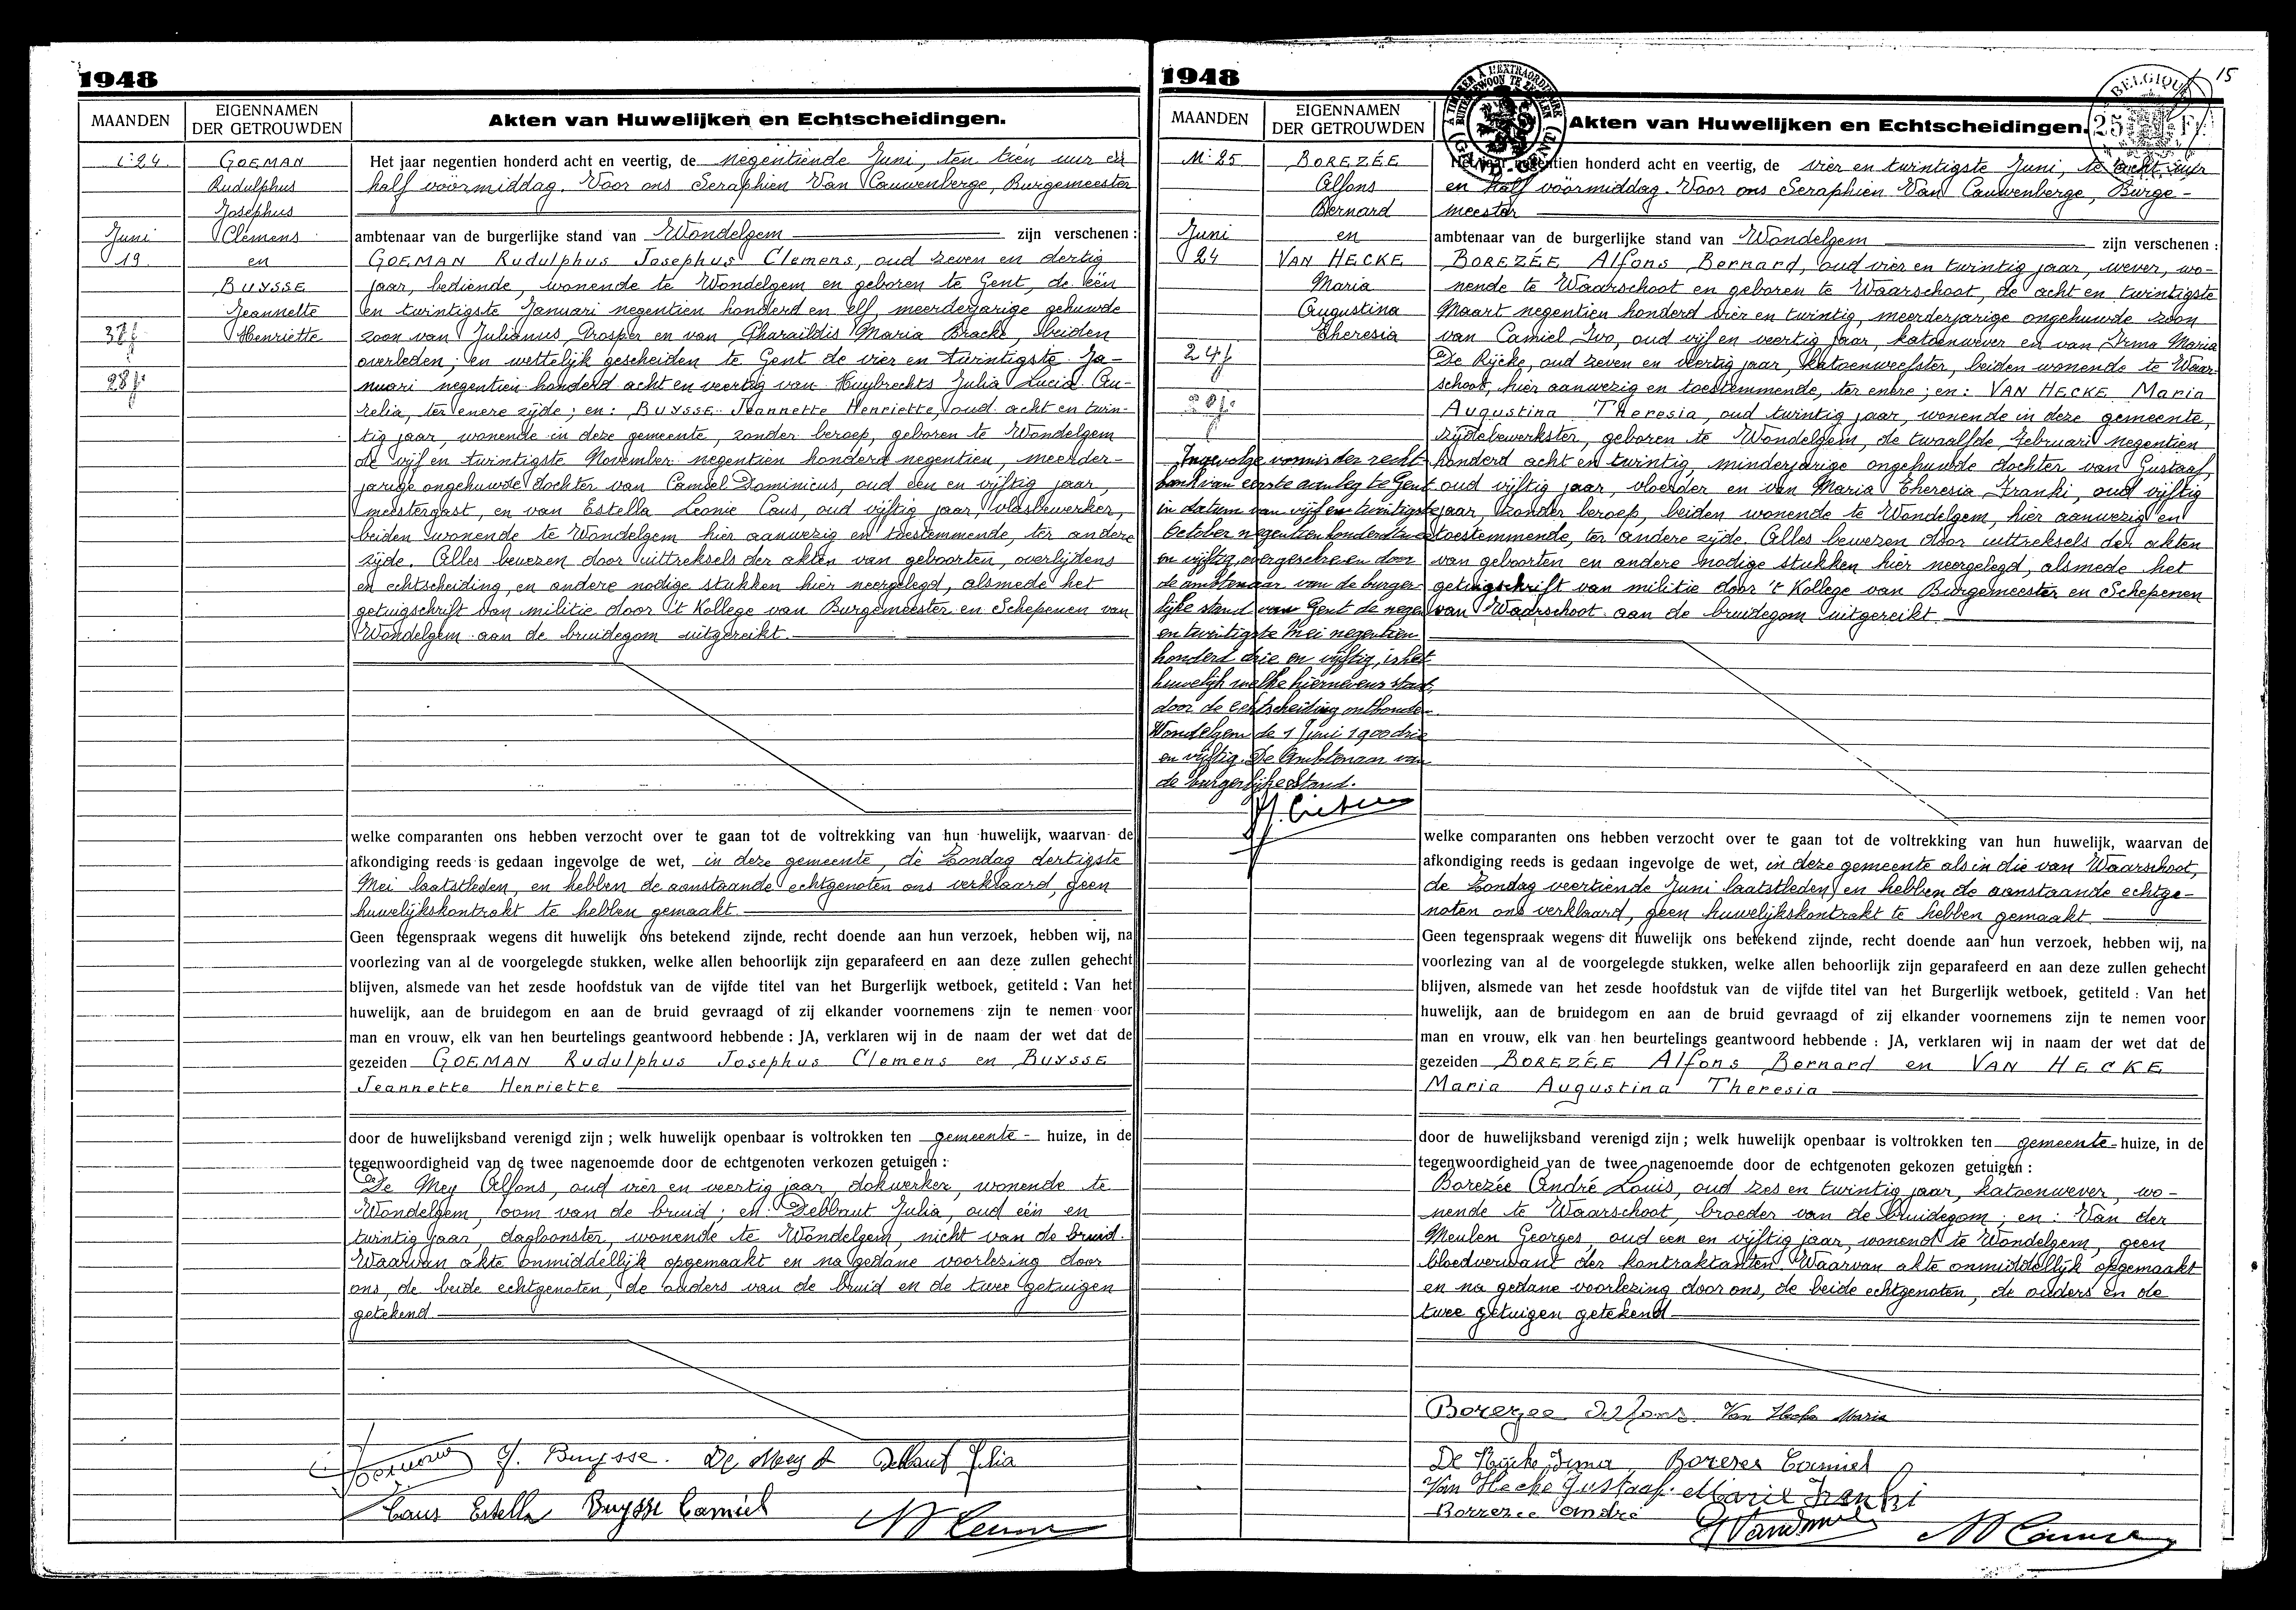 1948
MAANDEN
EIGENNAMEN
DER GETROUWDEN
Akten van Huwelijken en Echtscheidingen.
GOEMAN
Rudulphus
Josephus
Clemens
en
BUYSSE
Jeannette
Henriette
Juni
19
37 j
28 j
Het jaar negentien honderd acht en veertig, de negentiende Juni, ten tien uur en
half voormiddag. Voor ons Seraphien Van Cauwenberge, Burgemeester
ambtenaar van de burgerlijke stand van Wondelgem zijn verschenen :
GOEMAN Rudulphus Josephus Clemens, oud zeven en dertig
jaar, bediende, wonende te Wondelgem en geboren te Gent, de één
en twintigste Januari negentien honderd en elf, meerderjarige gehuwde
zoon van Julianus Prosper en van Pharaïldis Maria Bracke, beiden
overleden; en wettelijk gescheiden te Gent de vier en twintigste Ja-
nuari negentien honderd acht en veertig van Huybrechts Julia Lucia Au-
relia, ter enere zijde; en: BUYSSE Jeannette Henriette, oud acht en twin-
tig jaar, wonende in deze gemeente, zonder beroep, geboren te Wondelgem
de vijf en twintigste November negentien honderd negentien, meerder-
jarige ongehuwde dochter van Camiel Dominicus, oud een en vijftig jaar,
meestergast, en van Estella Leonie Caus, oud vijftig jaar, vlasbewerker,
beiden wonende te Wondelgem hier aanwezig en toestemmende, ter andere
zijde. Alles bewezen door uittreksels der akten van geboorten, overlijdens
en echtscheiding, en andere nodige stukken hier neergelegd, alsmede het
getuigschrift van militie door 't Kollege van Burgemeester en Schepenen van
Wondelgem aan de bruidegom uitgereikt.
welke comparanten ons hebben verzocht over te gaan tot de voltrekking van hun huwelijk, waarvan de
afkondiging reeds is gedaan ingevolge de wet, in deze gemeente, de Zondag dertigste
Mei laatstleden, en hebben de aanstaande echtgenoten ons verklaard, geen
huwelijkskontrakt te hebben gemaakt.
Geen tegenspraak wegens dit huwelijk ons betekend zijnde, recht doende aan hun verzoek, hebben wij, na
voorlezing van al de voorgelegde stukken, welke allen behoorlijk zijn geparafeerd en aan deze zullen gehecht
blijven, alsmede van het zesde hoofdstuk van de vijfde titel van het Burgerlijk wetboek, getiteld : Van het
huwelijk, aan de bruidegom en aan de bruid gevraagd of zij elkander voornemens zijn te nemen voor
man en vrouw, elk van hen beurtelings geantwoord hebbende : JA, verklaren wij in de naam der wet dat de
gezeiden GOEMAN Rudulphus Josephus Clemens en BUYSSE
Jeannette Henriette
door de huwelijksband verenigd zijn ; welk huwelijk openbaar is voltrokken ten gemeente- huize, in de
tegenwoordigheid van de twee nagenoemde door de echtgenoten verkozen getuigen :
De Mey Alfons, oud vier en veertig jaar, dokwerker, wonende te
Wondelgem, oom van de bruid; en: Debbaut Julia, oud één en
twintig jaar, dagloonster, wonende te Wondelgem, nicht van de bruid.
Waarvan akte onmiddellijk opgemaakt en na gedane voorlezing door
ons, de beide echtgenoten, de ouders van de bruid en de twee getuigen
getekend.
J. Buysse. De Mey A Debbaut Julia
Caus Estella Buysse Camiel
1948
15
BELGIQUE
25 Fr
MAANDEN
EIGENNAMEN
DER GETROUWDEN
Akten van Huwelijken en Echtscheidingen.
M. 25
BOREZÉE
Alfons
Bernard
en
VAN HECKE
Maria
Augustina
Theresia
Juni
24
24 j
Ingevolge vonnis der recht-
bank van eerste aanleg te Gent
in datum van vijf en twintigste
October negentien honderd twee
en vijftig, overgeschreven door
de ambtenaar van de burger-
lijke stand van Gent de negen
en twintigste Mei negentien
honderd drie en vijftig, is het
huwelijk welke hiernevens staat,
door de echtscheiding ontbonden.
Wondelgem de 1 Juni 1900 drie
en vijftig. De Ambtenaar van
de burgerlijke Stand.
Het jaar negentien honderd acht en veertig, de vier en twintigste Juni, te acht uur
en half voormiddag. Voor ons Seraphien Van Cauwenberge, Burge-
meester
ambtenaar van de burgerlijke stand van Wondelgem zijn verschenen :
BOREZÉE Alfons Bernard, oud vier en twintig jaar, wever, wo-
nende te Waarschoot en geboren te Waarschoot, de acht en twintigste
Maart negentien honderd vier en twintig, meerderjarige ongehuwde zoon
van Camiel Ivo, oud vijf en veertig jaar, katoenwever en van Irma Maria
De Rijcke, oud zeven en veertig jaar, katoenweefster, beiden wonende te Waar-
schoot, hier aanwezig en toestemmende, ter enere; en: VAN HECKE Maria
Augustina Theresia, oud twintig jaar, wonende in deze gemeente,
zijdebewerkster, geboren te Wondelgem, de twaalfde Februari negentien
honderd acht en twintig, minderjarige ongehuwde dochter van Gustaaf,
oud vijftig jaar, vloerder en van Maria Theresia Franki, oud vijftig
jaar, zonder beroep, beiden wonende te Wondelgem, hier aanwezig en
toestemmende, ter andere zijde. Alles bewezen door uittreksels der akten
van geboorten en andere nodige stukken hier neergelegd, alsmede het
getuigschrift van militie door 't Kollege van Burgemeester en Schepenen
van Waarschoot aan de bruidegom uitgereikt.
welke comparanten ons hebben verzocht over te gaan tot de voltrekking van hun huwelijk, waarvan de
afkondiging reeds is gedaan ingevolge de wet, in deze gemeente als in die van Waarschoot,
de Zondag veertiende Juni laatstleden, en hebben de aanstaande echtge-
noten ons verklaard, geen huwelijkskontrakt te hebben gemaakt
Geen tegenspraak wegens dit huwelijk ons betekend zijnde, recht doende aan hun verzoek, hebben wij, na
voorlezing van al de voorgelegde stukken, welke allen behoorlijk zijn geparafeerd en aan deze zullen gehecht
blijven, alsmede van het zesde hoofdstuk van de vijfde titel van het Burgerlijk wetboek, getiteld : Van het
huwelijk, aan de bruidegom en aan de bruid gevraagd of zij elkander voornemens zijn te nemen voor
man en vrouw, elk van hen beurtelings geantwoord hebbende : JA, verklaren wij in naam der wet dat de
gezeiden BOREZÉE Alfons Bernard en VAN HECKE
Maria Augustina Theresia
door de huwelijksband verenigd zijn ; welk huwelijk openbaar is voltrokken ten gemeente- huize, in de
tegenwoordigheid van de twee nagenoemde door de echtgenoten gekozen getuigen :
Borezée André Louis, oud zes en twintig jaar, katoenwever, wo-
nende te Waarschoot, broeder van de bruidegom; en: Van der
Meulen Georges, oud een en vijftig jaar, wonend te Wondelgem, geen
bloedverwant der kontraktanten. Waarvan akte onmiddellijk opgemaakt
en na gedane voorlezing door ons, de beide echtgenoten, de ouders en de
twee getuigen getekend
Borezee Alfons. Van Hecke Maria
De Rijcke Irma, Borezee Camiel
Van Hecke Gustaaf. Marie Franki
Borezee andré